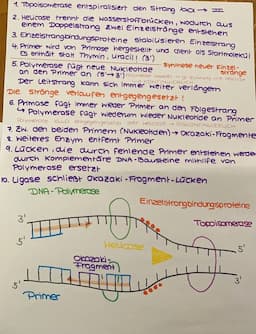 1. Topoisomerase entspiralisiert den Strang
2. Helicase trennt die Wasserstoffbrücken, wodurch aus
einem Doppelstrang zwei Einzelstränge entstehen
3. Einzelstrangbindungsproteine stabilisieren Einzelstrang
4. Primer wird von Primase hergestellt und dient als Startmolekül
Es enthält statt Thymin, Uracil! (3')
5. Polymerase fügt neue Nukleotide
an den Primer an (5'→3')
Synthese neuer Einzel-
stränge
Der Leitstrang kann sich immer weiter verlängern
Die Stränge verlaufen entgegengesetzt!
6. Primase fügt immer wieder Primer an den Folgestrang
↳ Polymerase fügt wiederum wieder Nukleotide an Primer
7. Zw. den beiden Primern (Nukleotiden) → Okazaki-Fragmente
8. Weiteres Enzym entfernt Primer
9. Lücken, die durch fehlende Primer entstehen werden
durch komplementäre DNA-Bausteine mithilfe von
Polymerase ersetzt
10. Ligase schließt Okazaki-Fragment-Lücken
DNA-Polymerase
Einzelstrangbindungsproteine
Topoisomerase
3'
Helicase
5'
5'
Okazaki-
Fragment
3'
3'
Primer
5'